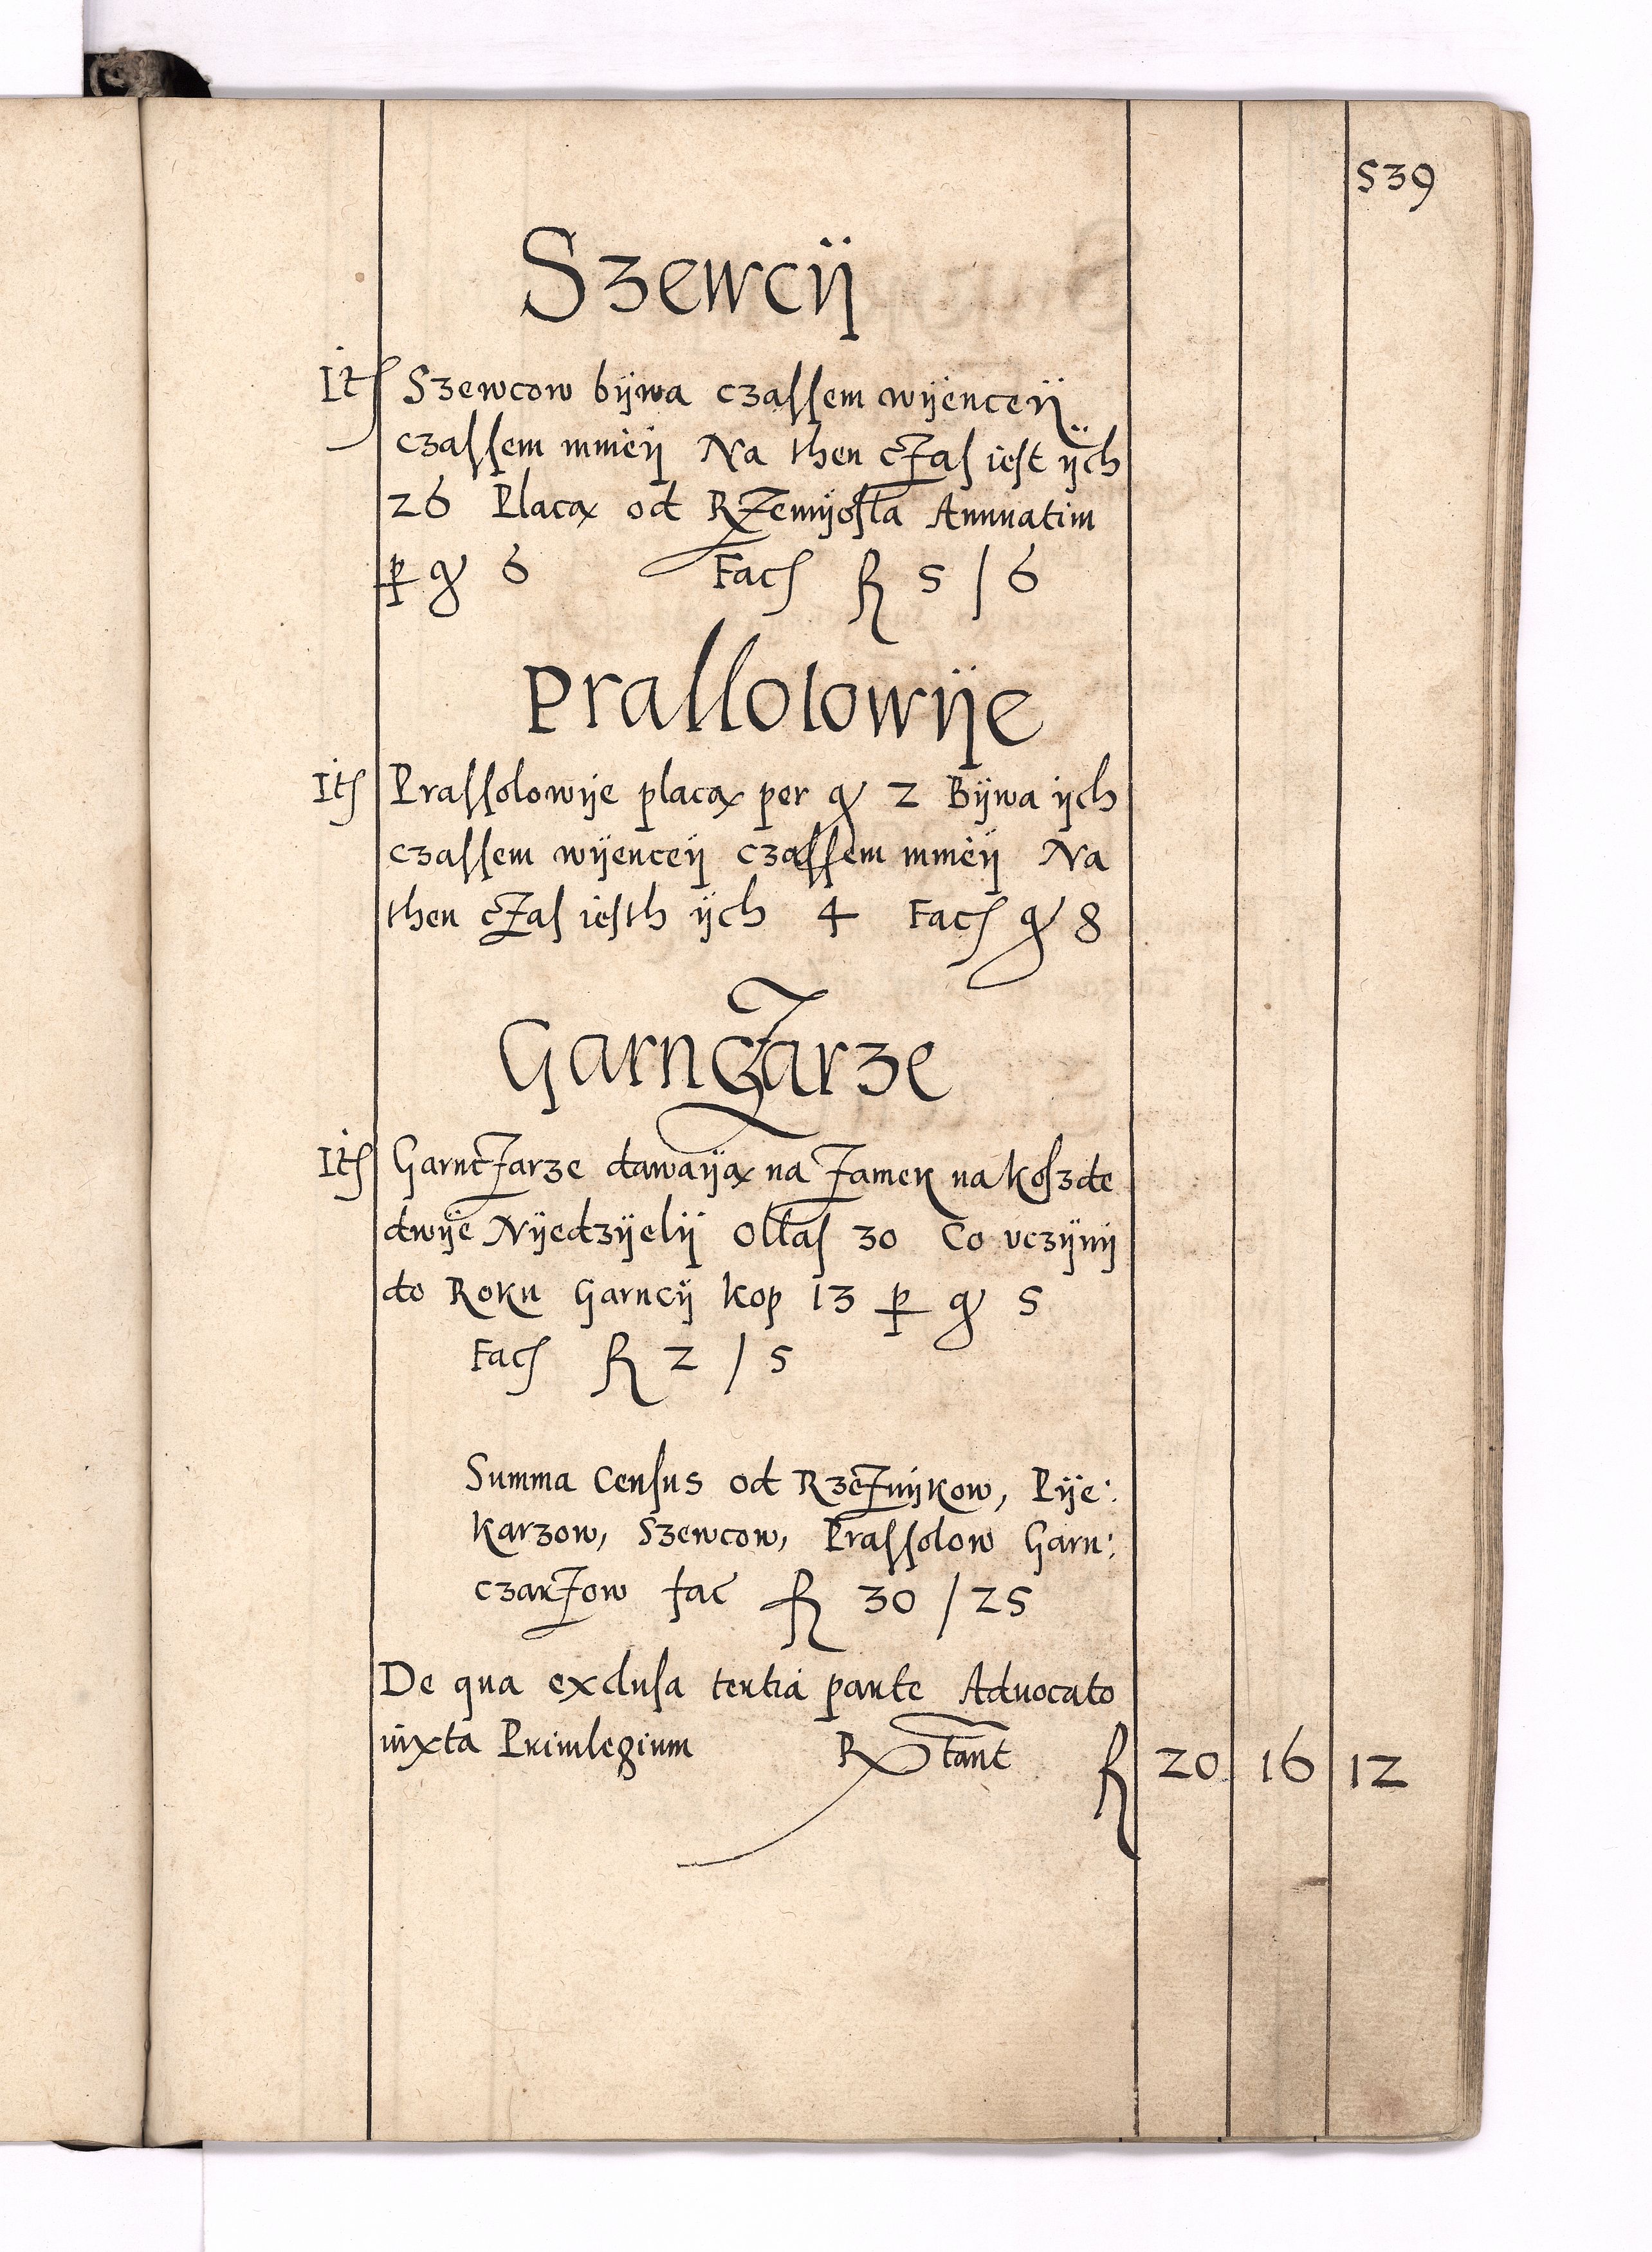 539
Szewcÿ
It̃ Szewcow bÿwa czaſſem wÿenceÿ
czaſſem mnieÿ Na then cZaſ ieſt ÿch
26 Placą od RZemÿoſla Annuatim
ꝑ gr 6 Facſ fl 5 / 6
Praſſolowÿe
It̃ Praſſolowÿe placą per gr 2 Bÿwa ÿch
czaſſem wÿenceÿ czaſſem mnieÿ Na
then cZaſ ieſth ÿch 4 Facſ gr 8
GarncZarze
It̃ GarncZarze dawaÿą na Zamek na koſzde
dwÿe Nÿedzÿelÿ Ollaſ 30 Co vczÿnÿ
do Roku Garncÿ kop 13 ꝑ gr 5
Facſ fl 2 / 5
Summa Cenſus od RzeZnÿkow, Pÿe:
karzow, Szewcow, Praſſolow Garn:
czarZow fac̃ fl 30 / 25
De qua excluſa tertia parte Aduocato
iuxta Priuilegium Rx̃tant fl 20 16 12